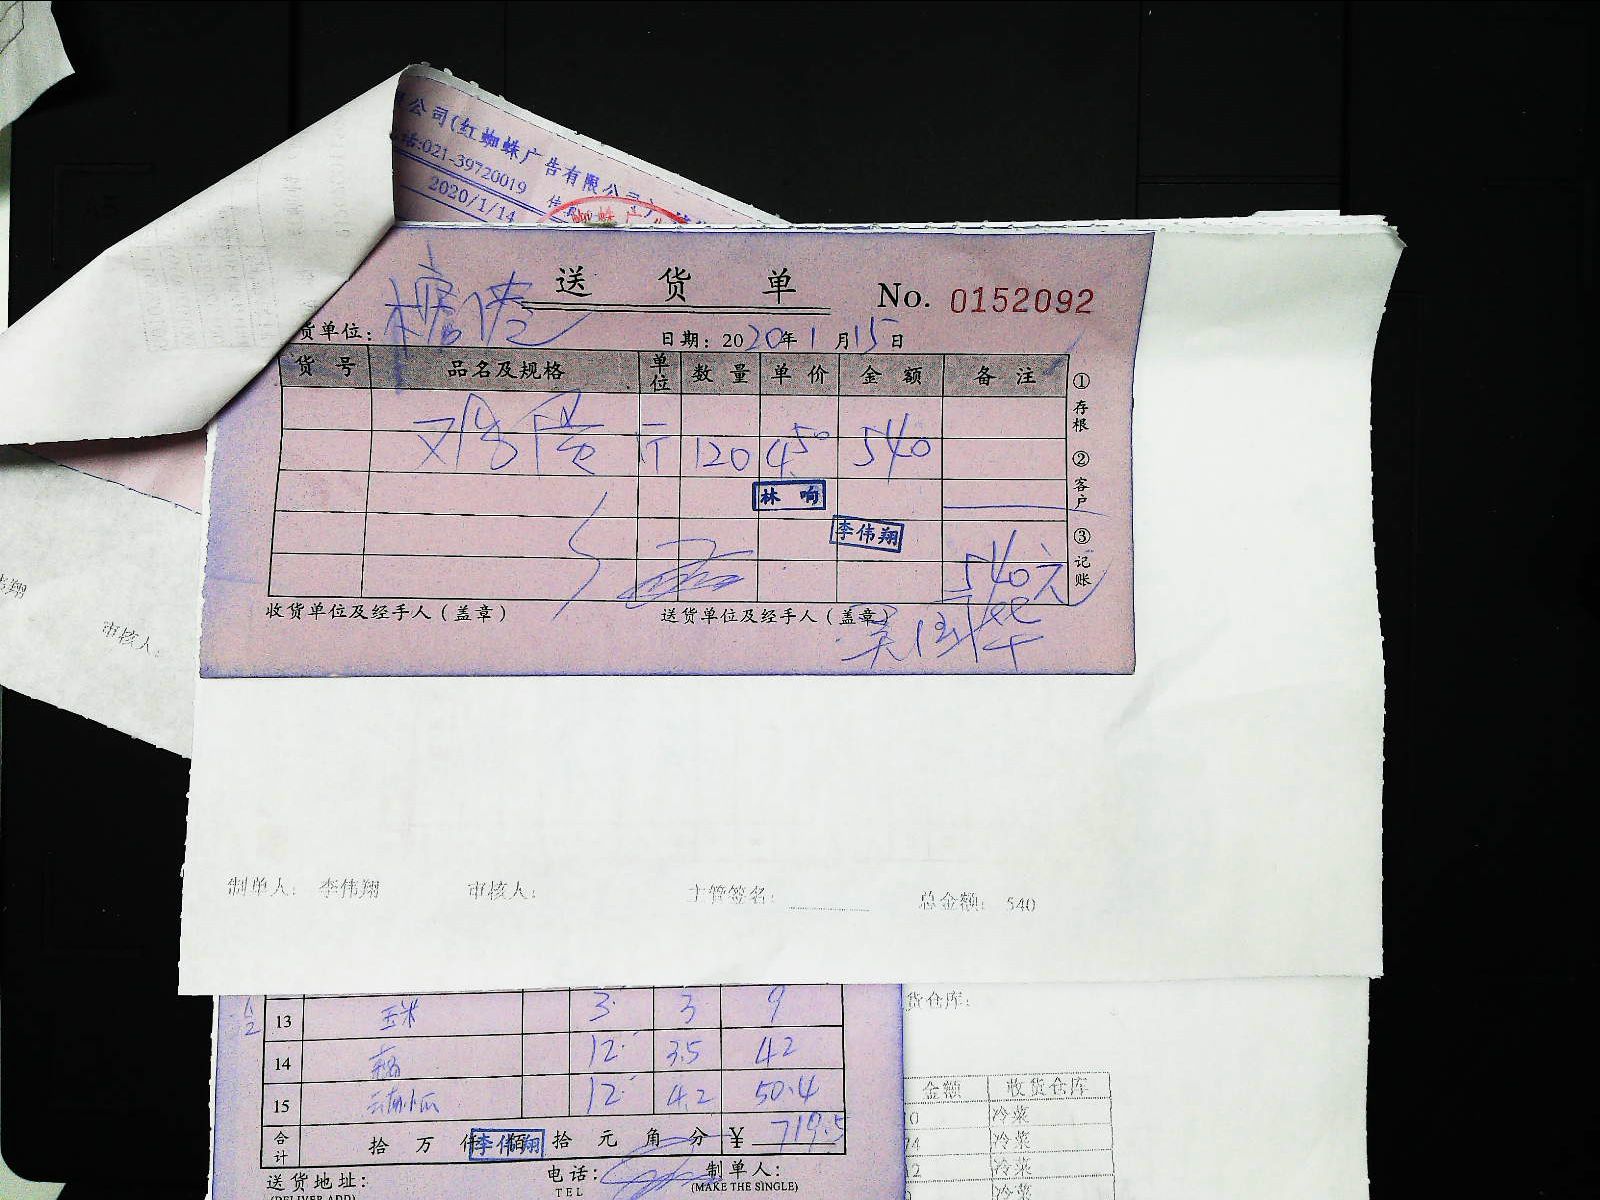 公司(红蜘蛛广告有限公司)
话:021-39720019
2020/1/14
送 货 单
No. 0152092
货单位:
日期: 2020年1月15日
货 号 品名及规格 单位 数 量 单 价 金 额 备 注
鸡蛋 斤 120 4.50 540
林 响
李伟翔
540元
①存根 ②客户 ③记账
收货单位及经手人(盖章) 送货单位及经手人(盖章)
吴国华
伟翔
审核人:
制单人: 李伟翔 审核人: 主管签名: 总金额: 540
货仓库:
13 玉米 3 3 9
14 12 3.5 42
15 12 4.2 50.4
合计 拾 万 仟 佰 拾 元 角 分 ¥ 719.5
李伟翔
送货地址: 电话: 制单人:
(DELIVER ADD) TEL (MAKE THE SINGLE)
金额 收货仓库
冷菜
冷菜
冷菜
冷菜